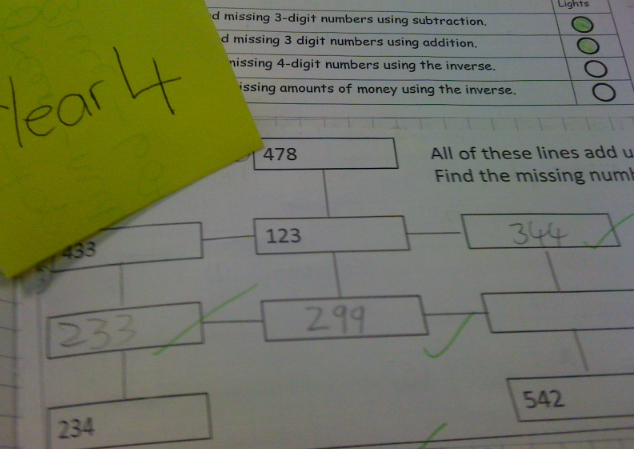 Lights
missing 3-digit numbers using subtraction.
missing 3 digit numbers using addition.
missing 4-digit numbers using the inverse.
amounts of money using the inverse.
Year 4
478
All of these lines add
Find the missing
433
123
344
233
299
234
542